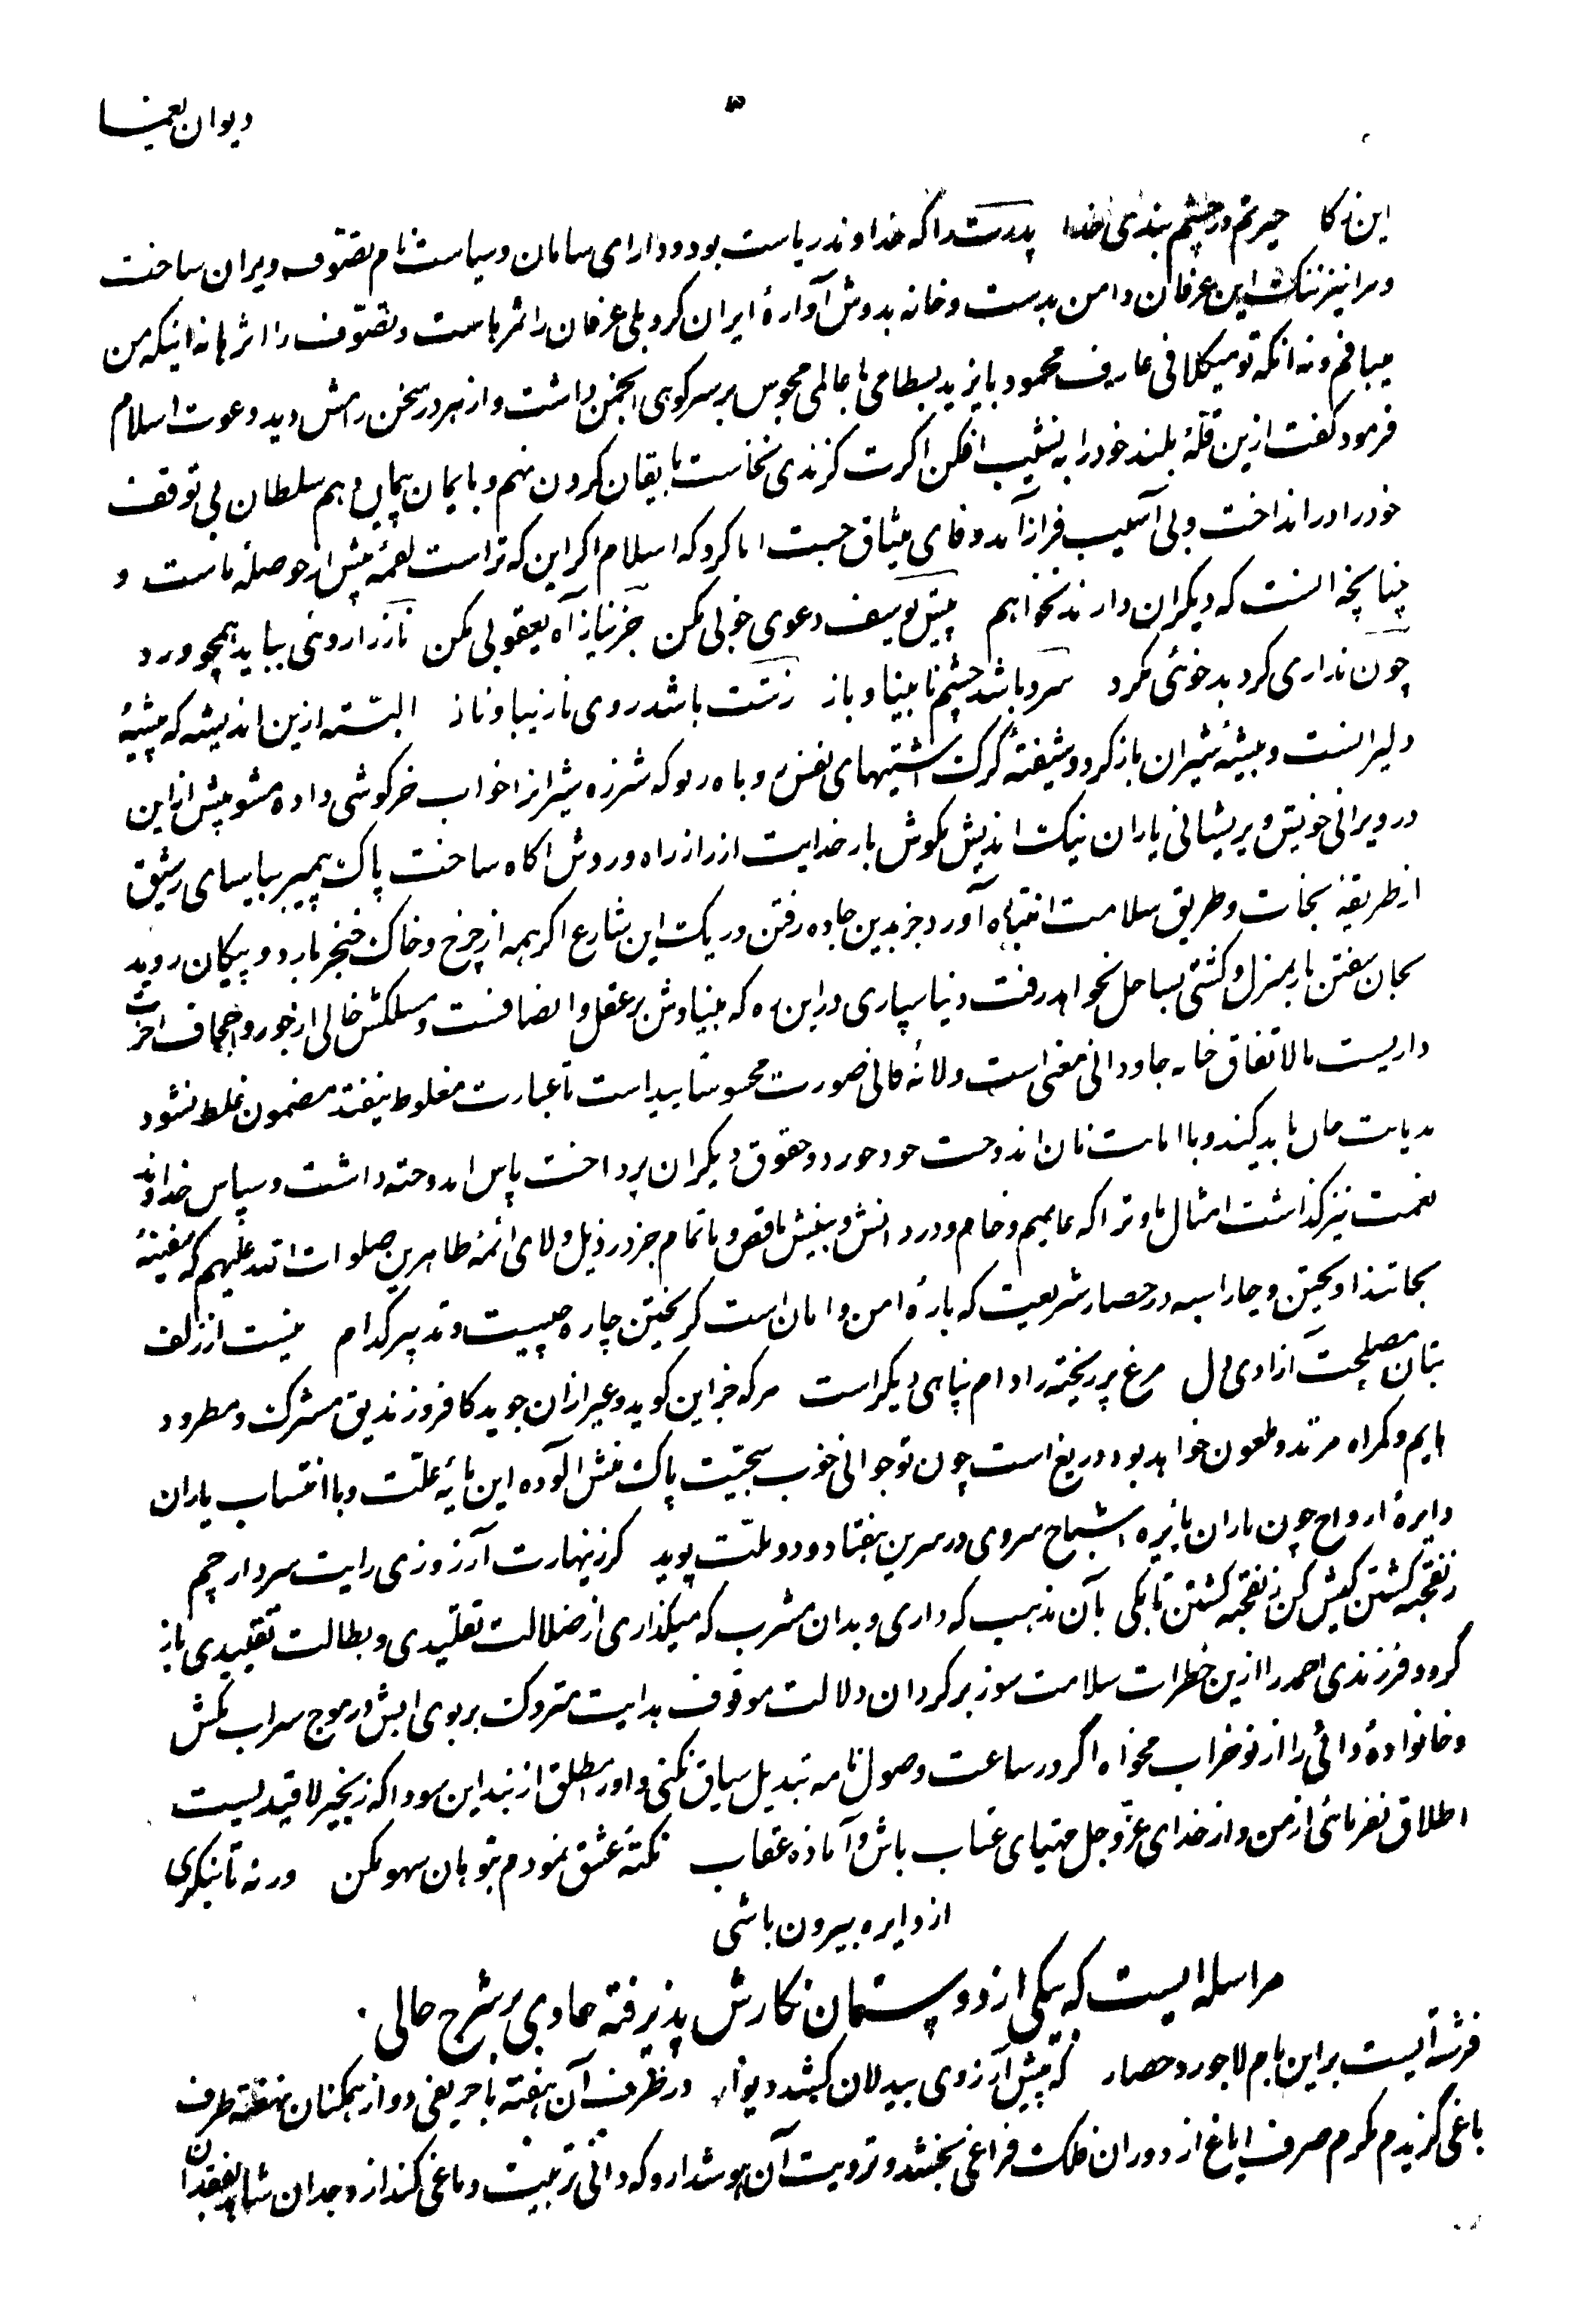 دیوان یغما
۳
این ذکا حیرتم در چشم بندی خدا پدرت را که خداوند ریاست بود و دارای سامان و سیاست نام تصوف ویران ساخت
و مرا نیز ننگ این عرفان دامن بدست و خانه بدوش آوارهٔ ایران کرد بلی عرفان را ثمرهاست و تصوّف را اثرها نه اینکه من
میبافم و نه آنکه تو میکلافی عارف محمود بایزید بسطامی با عالمی مجوس بر سر کوهی انجمن داشت و از هر در سخن رامش دید دعوت اسلام
فرمود گفت ازین قلهٔ بلند خود را به نشیب افکن اگرت گزندی نخاست بایقان گردن نهم و بایمان پیمان دهم سلطان بی توقف
خود را در انداخت و بی آسیب فراز آمد وفای میثاق جست ابا کرد که اسلام اگر این که تراست لقمهٔ بیش از حوصلهٔ ماست و
چنانچه انست که دیگران دارند نخواهم پیش یوسف دعوی خوبی مکن جز نیاز آه یعقوبی مکن ناز را روئی بباید همچو ورد
چون نداری گرد بدخوئی مگرد سرد باشد چشم نابینا و باز زشت باشد روی نازیبا و ناز البته ازین اندیشه که پیشهٔ
دلیرانست و بیشهٔ شیران باز گرد و شیفتهٔ گرگ آشتیهای نفس روباه ربو که شرزه شیرانرا خواب خرگوشی داده مشو بیش ازاین
در ویرانی خویش و پریشانی یاران نیک اندیش مکوش بار خدایت از راز راه و روش آگاه ساخت پاک پیمبر بیاسای رشیق
از طریقهٔ نجات و طریق سلامت انتباه آورد جز بدین جاده رفتن و ریک این شارع اگر همه از چرخ و خاک خنجر بارد و پیکان روید
بجان سفتن بار بمنزل و کشتی بساحل نخواهد رفت دنیا سپاری در این ره که بنیادش بر عقل و انصافست و مسلکش خالی از جور و اجحاف اخرت
داریست بالاتفاق خانه جاودانی معنی است و لانهٔ فانی صورت محسوسا پیداست تا عبارت مغلوط نیفتد مضمون غلط نشود
بدیانت مان باید کیند و با امانت نان اندوخت خود خورد و حقوق دیگران پرداخت پاس اندوخته داشت و سپاس خداوند
نعمت نیز گذاشت امثال ما و ترا که عامیم و خام و در دانش و بینش ناقص و ناتمام جز در ذیل ولای ائمهٔ طاهرین صلوات الله علیهم که سفینهٔ
نجاتند اویختن و چاراسبه در حصار شریعت که بارهٔ امن و امان است گریختن چاره چیست و تدبیر کدام نیست از زلف
بتان مصلحت آزادی دل مرغ پر ریخته را دام پناهی دیگر است هر که جز این گوید و غیر ازان جوید کافر و زندیق مشرک و مطرود
هایم و گمراه مرتد و ملعون خواهد بود دریغ است چون تو جوانی خوب سجیت پاک منش الوده این مایهٔ علّت و با انتساب یاران
دایرهٔ ارواح چون باران بایره اشباح سروی در سرین هفتاد و دو ملّت پوید گر زنهارت آرزوزی رایت سردار چم
ز نقحبه گشتن کیش کن ز نقحبه گشتن تا بکی بآن مذهب که داری و بدان مشرب که میگذاری از ضلالت تقلیدی و بطالت تقییدی باز
گرد و فرزندی احمد را ازین خطرات سلامت سوز بر گردان دلالت موقوف هدایت متروک بر بوی ابش در موج سراب مکش
و خانوادهٔ دائی را از نو خراب مخواه اگر در ساعت وصول نامه تبدیل سیاق نکنی و اورا مطلق از بند این سودا که زنجیر لا قید لیست
اطلاق نفرمائی از من و از خدای عزّ و جل مهیای عتاب باش و آماده عقاب نکته عشق نمودم بتو هان سهو مکن ورنه تا بنگری
از دایره بیرون باشی
مراسله ایست که بیکی از دوستان نگارش پذیرفته حاوی بر شرح حالی
فرشته ایست بر این بام لاجورد حصار که پیش آرزوی بیدلان کشد دیوار در ظرف آن هفته با حریفی دو از همگنان طرف
باغی گزیدم مگرم صرف ایاغ از دوران فلک فراغی بخشد و ترویت آن هوشدارو که دانی تربیت دماغی کند از وجدان شاهد